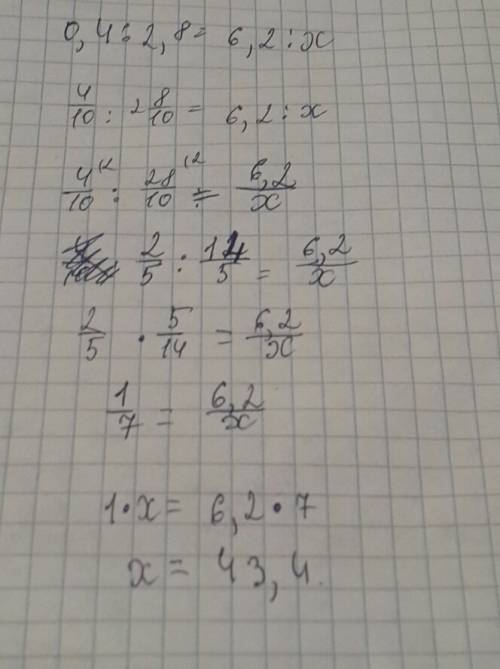 0,4:2,8= 6,2:x
4/10 : 2 8/10 = 6,2:x
4/10 (2 : 28/10 (2 = 6,2/x
2/5 : 14/5 = 6,2/x
2/5 · 5/14 = 6,2/x
1/7 = 6,2/x
1·x= 6,2·7
x= 43,4.